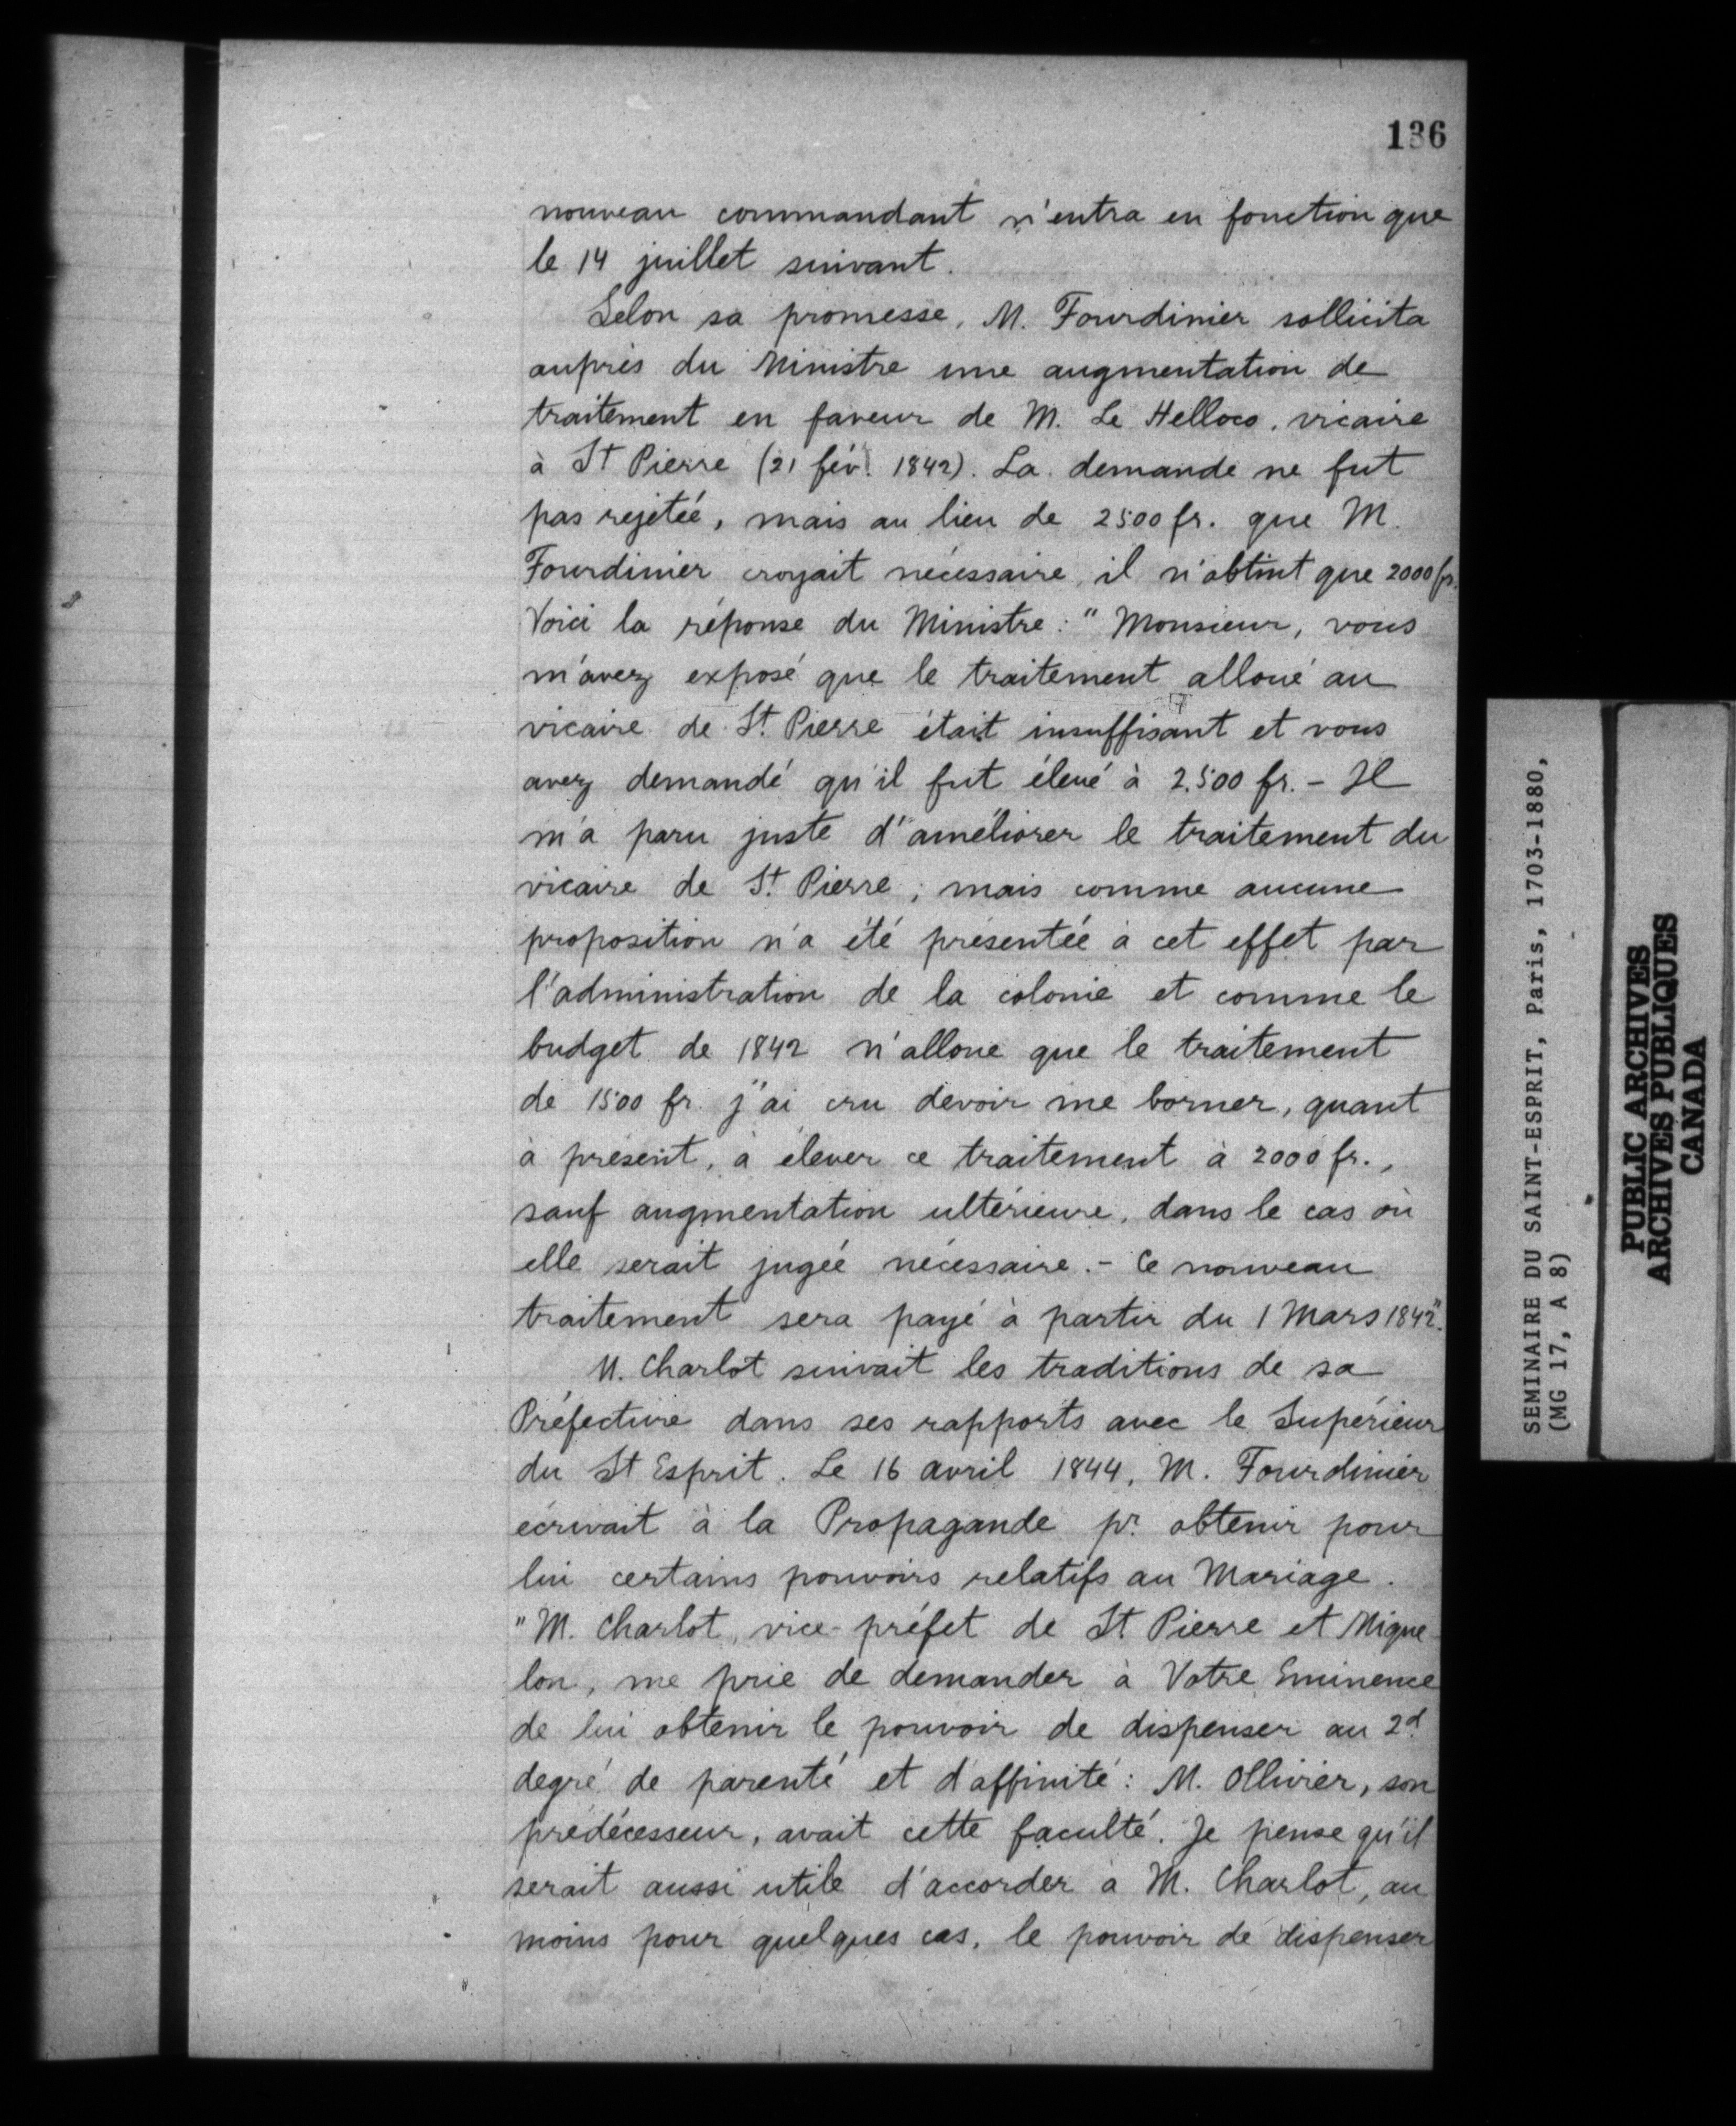 136
nouveau commandant n'entra en fonction que
le 14 juillet suivant.
Selon sa promesse, M. Fourdinier sollicita
auprès du Ministre une augmentation de
traitement en faveur de M. Le Helloco, vicaire
à St Pierre (21 fév. 1842). La demande ne fut
pas rejetée, mais au lieu de 2500 fr. que M.
Fourdinier croyait nécessaire, il n'obtint que 2000 fr.
Voici la réponse du Ministre : "Monsieur, vous
m'avez exposé que le traitement alloué au
vicaire de St. Pierre était insuffisant et vous
avez demandé qu'il fut élevé à 2.500 fr. - Il
m'a paru juste d'améliorer le traitement du
vicaire de St. Pierre ; mais comme aucune
proposition n'a été présentée à cet effet par
l'administration de la colonie et comme le
budget de 1842 n'alloue que le traitement
de 1500 fr. j'ai cru devoir me borner, quant
à présent, à élever ce traitement à 2000 fr.,
sauf augmentation ultérieure, dans le cas où
elle serait jugée nécessaire. - Ce nouveau
traitement sera payé à partir du 1 Mars 1842".
M. Charlot suivait les traditions de sa
Préfecture dans ses rapports avec le Supérieur
du St Esprit. Le 16 avril 1844, M. Fourdinier
écrivait à la Propagande pr. obtenir pour
lui certains pouvoirs relatifs au Mariage.
"M. Charlot, vice-préfet de St Pierre et Mique
lon, me prie de demander à Votre Eminence
de lui obtenir le pouvoir de dispenser au 2d
degré de parenté et d'affinité : M. Ollivier, son
prédécesseur, avait cette faculté. Je pense qu'il
serait aussi utile d'accorder à M. Charlot, au
moins pour quelques cas, le pouvoir de dispenser
SEMINAIRE DU SAINT-ESPRIT, Paris, 1703-1880,
(MG 17, A 8)
PUBLIC ARCHIVES
ARCHIVES PUBLIQUES
CANADA